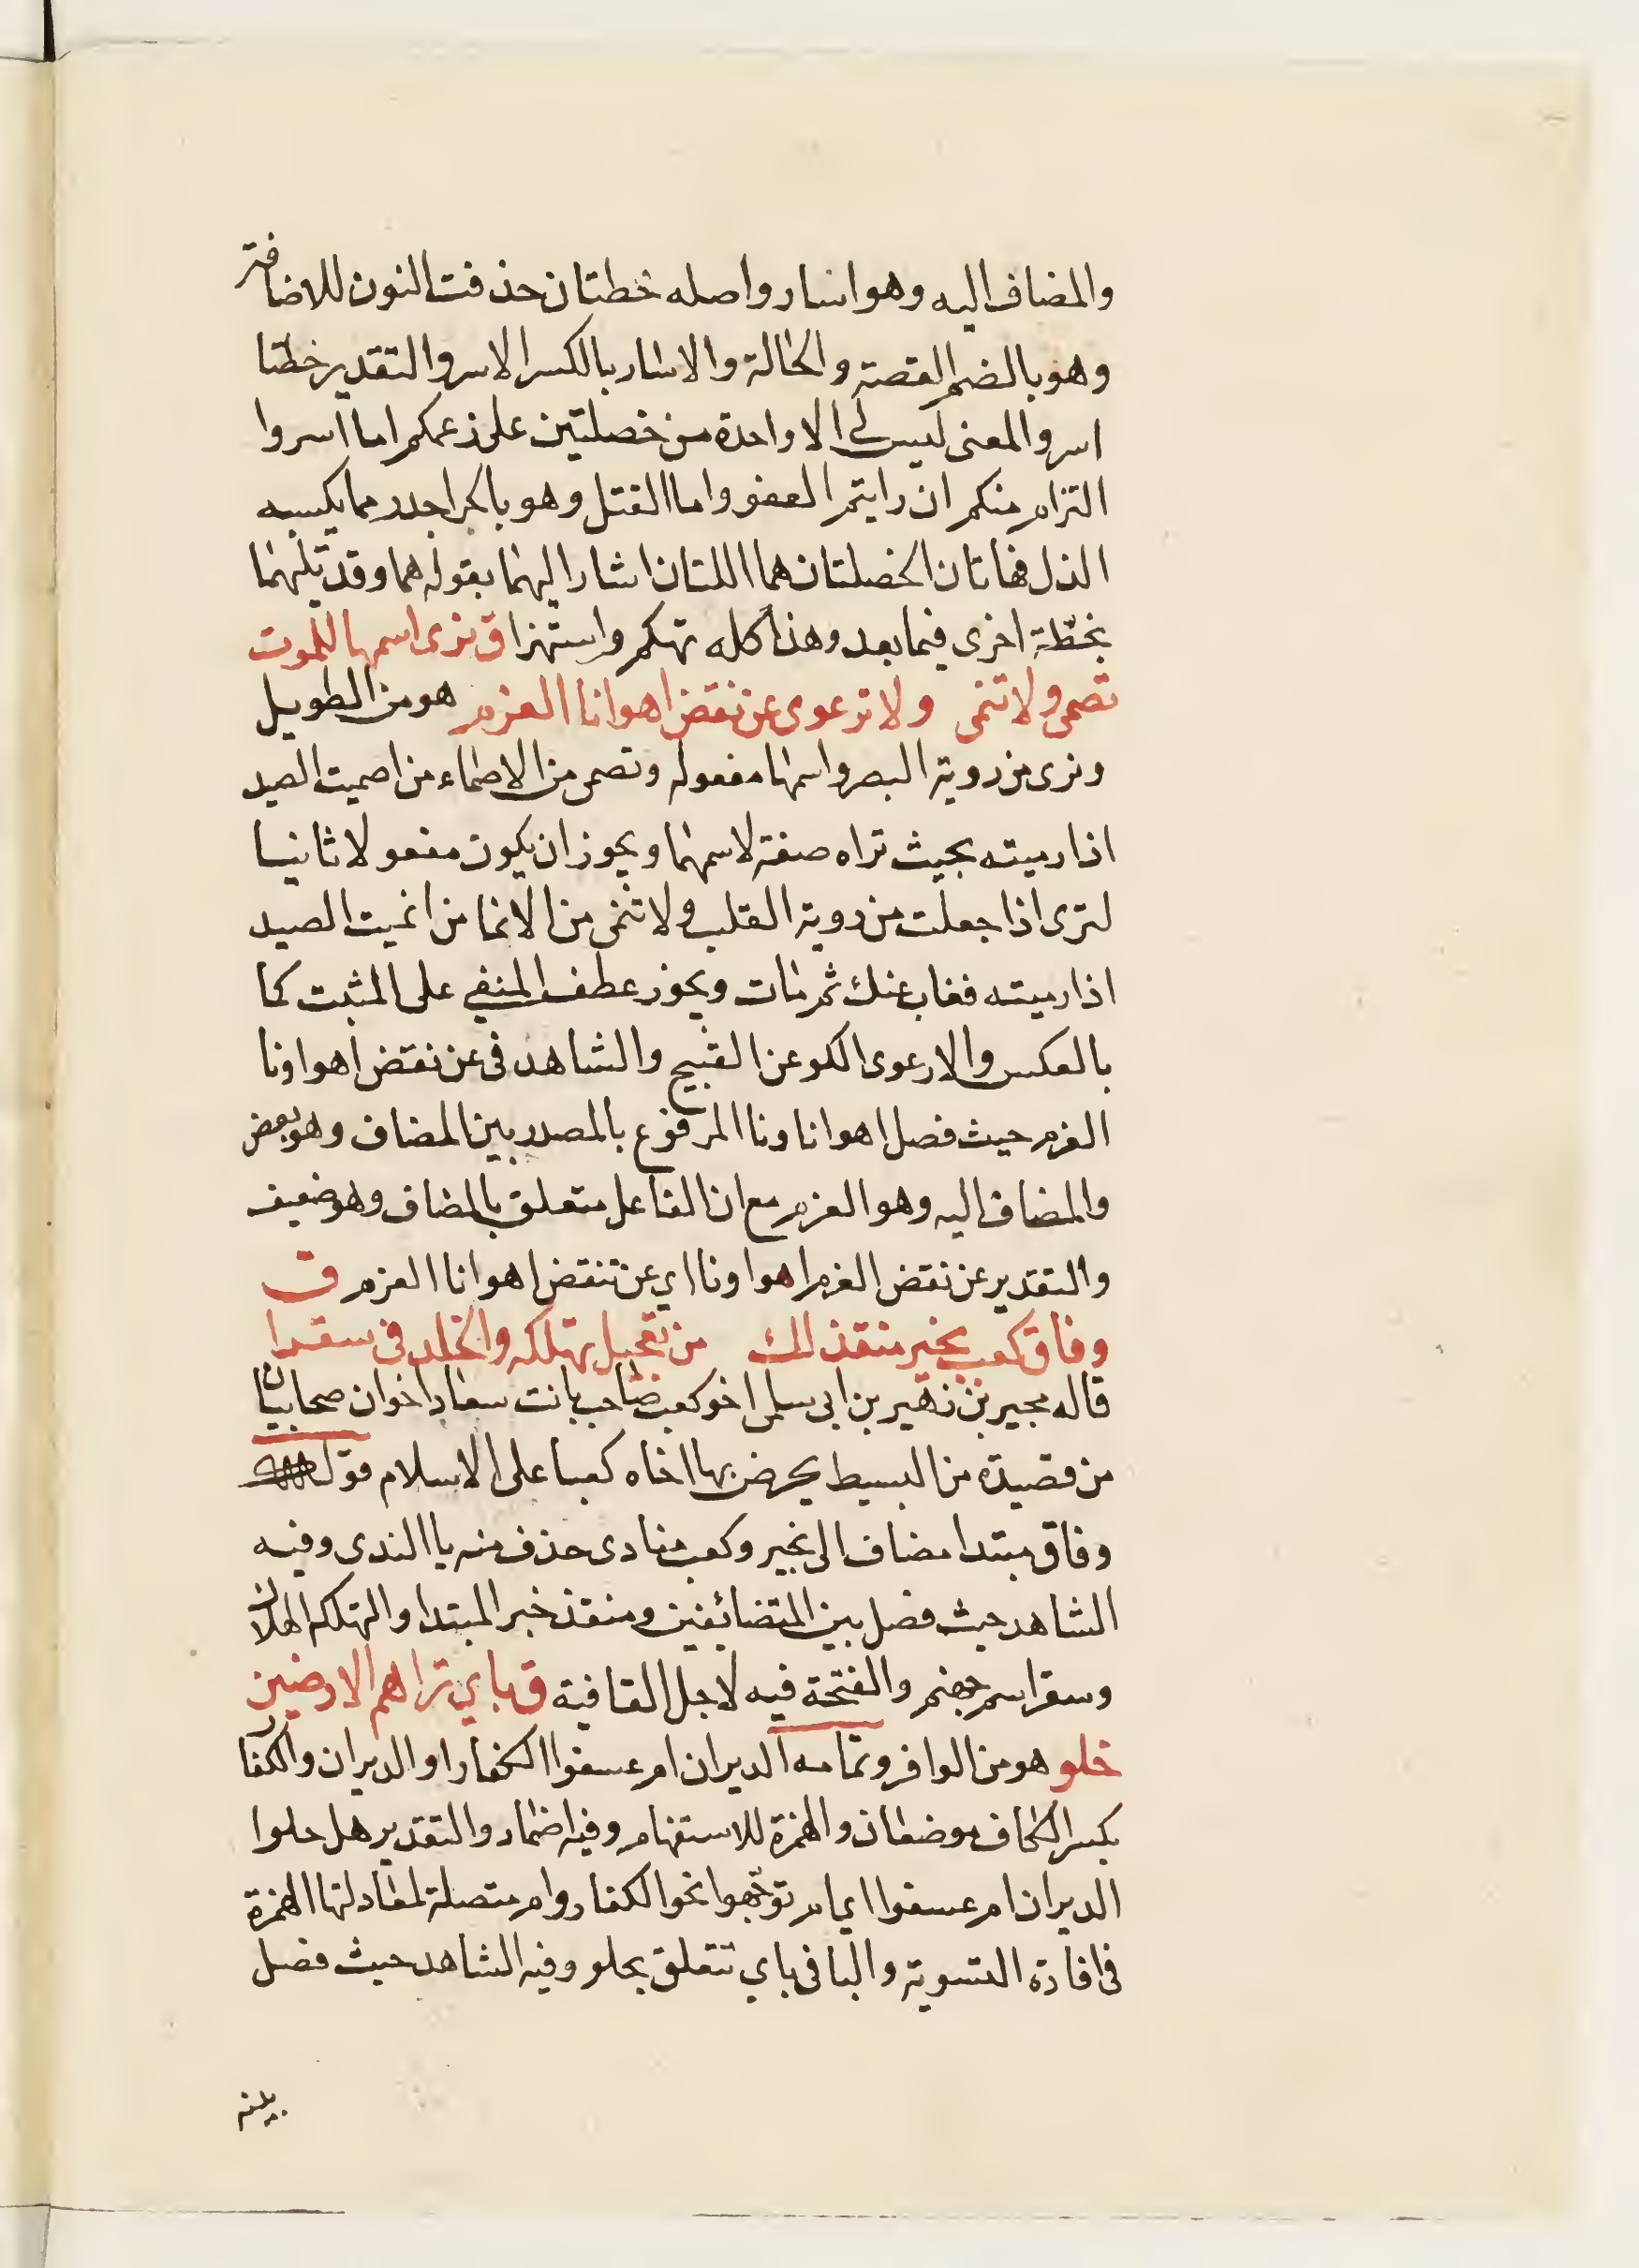 والمضاف اليه وهو اسار واصله خطتان حذفت النون للاضافة
وهو بالضم القصة والحالة والاسار بالكسر الاسر والتقدير خطتا
اسر والمعنى ليس لي الا واحدة من خصلتين على زعمكم اما اسر وا
التزام منكم ان رايتم العفو واما القتل وهو بالحر اجدر مما يكسبه
الذل فهاتان الخصلتان هما اللتان اشار اليهما بقوله هما وقد ثلثهما
بخطة اخرى فيما بعد وهذا كله تهكم واستهزا ق نرى اسهما للموت
تصمى ولا تنمى ولا ترعوى عن نقض اهوانا العزم هو من الطويل
ونرى من روية البصر واسهما مفعوله وتصمى من الاصماء من اصميت الصيد
اذا رميته بحيث تراه صفة لاسهما ويجوز ان يكون مفعولا ثانيا
لترى اذا جعلت من روية القلب ولا تنمى من الانما من انميت الصيد
اذا رميته فغاب عنك ثم مات ويجوز عطف المنفي على المثبت كما
بالعكس والارعوى الكو عن القبيح والشاهد فى عن نقض اهواونا
العزم حيث فصل اهوانا ونا المرفوع بالمصدر بين المضاف وهو بعض
والمضاف اليه وهو العزم مع ان الفاعل متعلق بالمضاف وهو ضعيف
والتقدير عن نقض العزم اهواونا اي عن تنقض اهوانا العزم ق
وفاق كعب بخير منقذ لك من تعجيل تهلكه والخلد فى سقرا
قاله بجير بن زهير بن ابى سلمى اخو كعب صاحب بانت سعاد اخوان صحابيان
من قصيدة من البسيط يحرض بها اخاه كعبا على الاسلام قوله
وفاق مبتدا مضاف الى بجير وكعب منادى حذف منه يا الندى وفيه
الشاهد حيث فصل بين المتضائفين ومنقذ خبر المبتدا والتهلكه الهلاك
وسقر اسم جهنم والفتحة فيه لاجل القافية ق باي تراهم الارضين
حلو هو من الوافر وتمامه الدبران ام عسفوا الكفارا والدبران والكفا
بكسر الكاف موضعان والهمزة للاستفهام وفيه اضمار والتقدير هل حلوا
الدبران ام عسفوا اي ام توجهوا نحو الكفار وام متصلة لمعادلتها الهمزة
فى افادة التسوية والبا فى باي تتعلق بحلو وفيه الشاهد حيث فصل
بينه